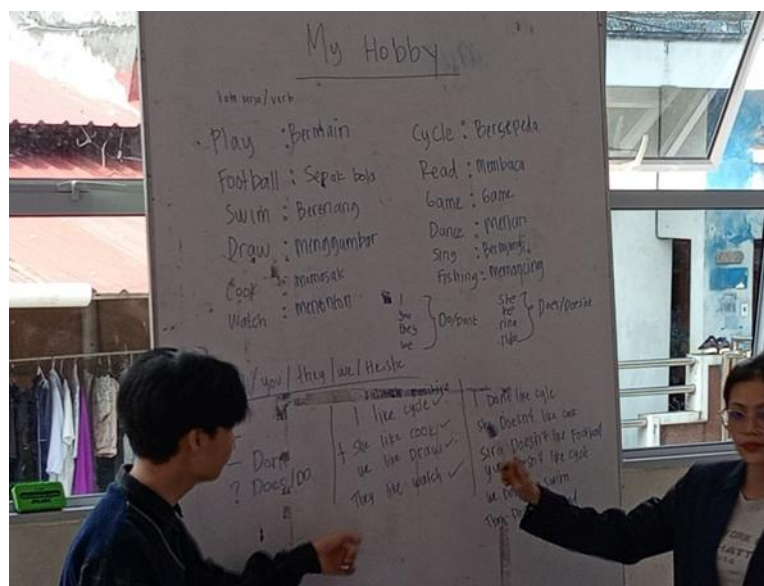 My Hobby
kata kerja/verb
Play : Bermain
Football : Sepak bola
Swim : Berenang
Draw : Menggambar
Cook : memasak
Watch : menonton
Cycle : Bersepeda
Read : Membaca
Game : Game
Dance : Menari
Sing : Bernyanyi
Fishing : Memancing
I
you
they
we
Do/Dont
she
he
rina
Does/Doesnt
/ you / they / we / He. she
- Dont
? Does/Do
I like cycle ✓
+ she like cook ✓
we like Draw ✓
They like watch ✓
I Dont like cycle
she Doesn't like cook
Doesn't like Football
like cycle
we swim
They